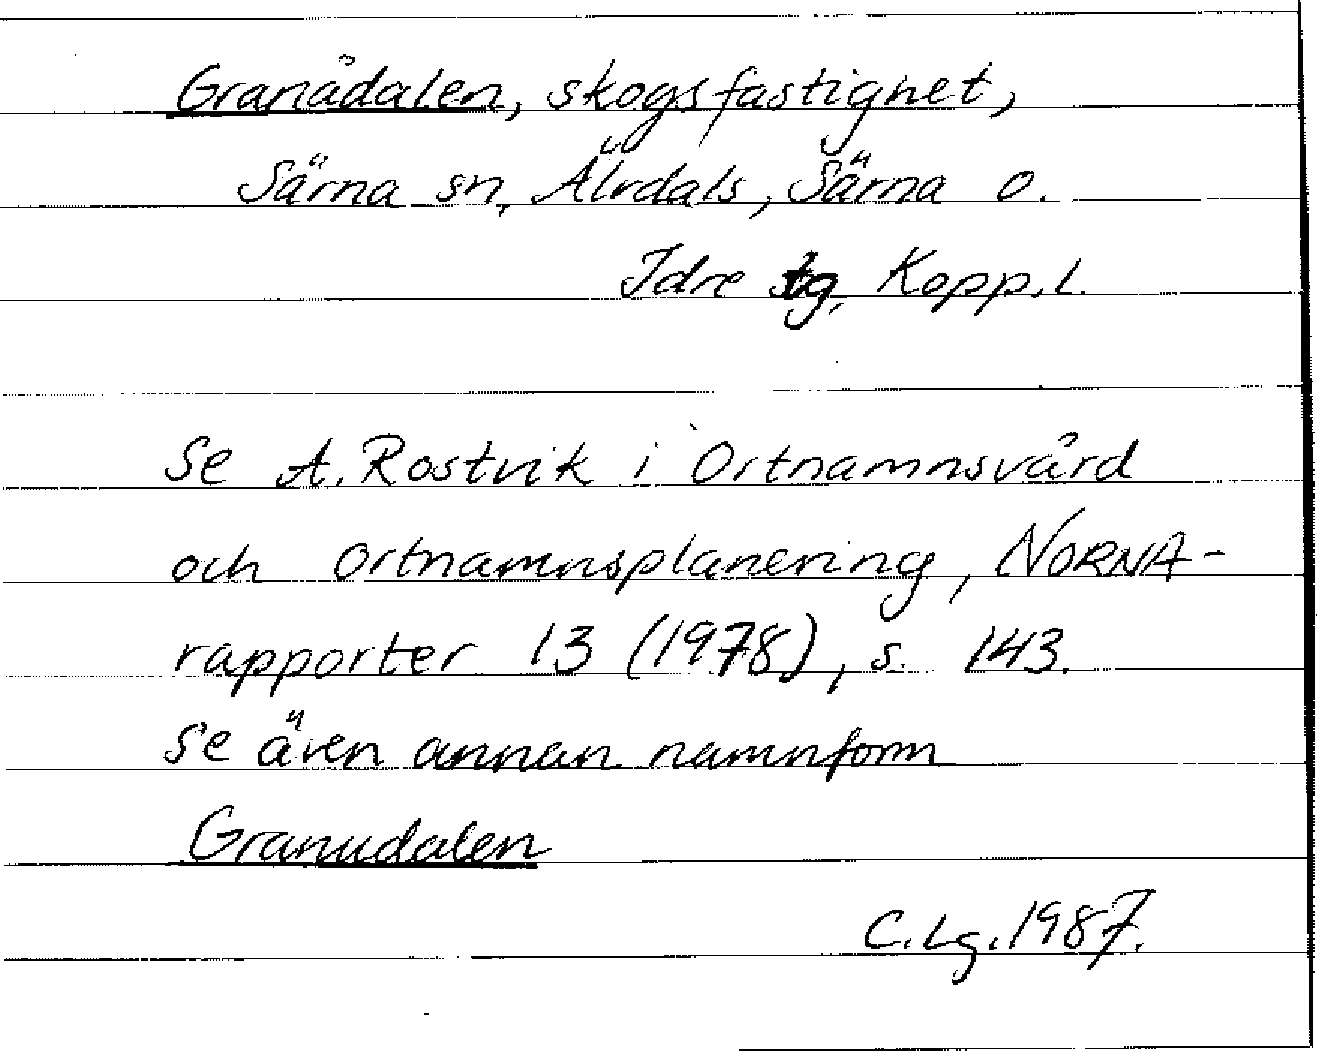 Granådalen, skogsfastighet,
Särna sn, Älvdals, Särna o.
Idre tg, Kopp. l.
Se A. Rostvik i Ortnamnsvård
och ortnamnsplanering, NORNA-
rapporter 13 (1978), s. 143.
Se även annan namnform
Granudalen
C. Lg. 1987.